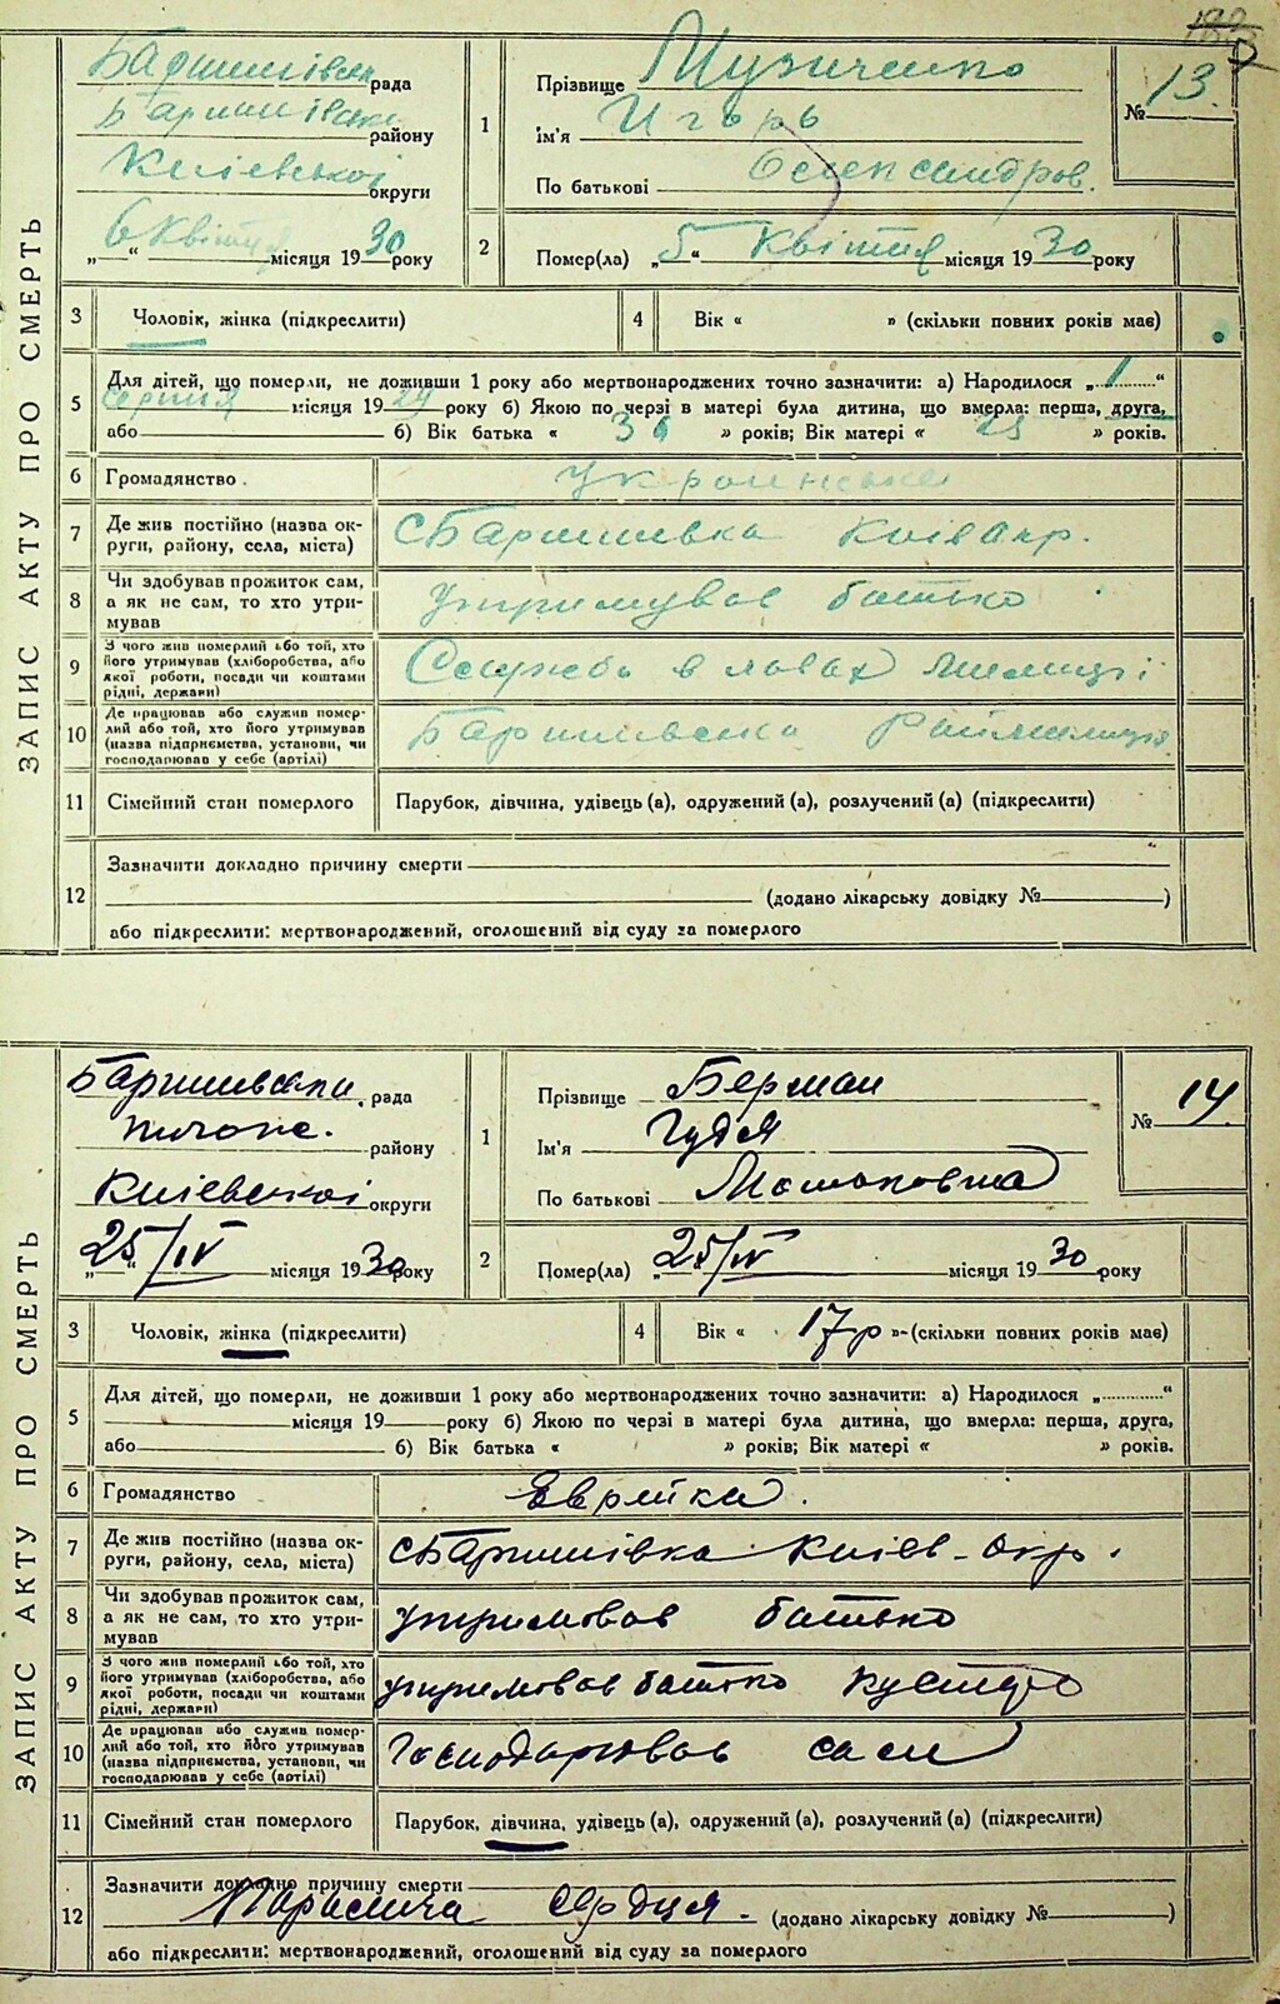 Баришівськ рада
Баришівськ району
Київської округи
„6“ Квітня місяця 1930 року
1
Прізвище Музиченко
Ім'я Игорь
По батькові Олександров.
№ 13.
2
Помер(ла) „5“ Квітня місяця 1930 року
ЗАПИС АКТУ ПРО СМЕРТЬ
3 Чоловік, жінка (підкреслити)
4 Вік « » (скільки повних років має)
5 Для дітей, що померли, не доживши 1 року або мертвонароджених точно зазначити: а) Народилося „1“
серпня місяця 1929 року б) Якою по черзі в матері була дитина, що вмерла: перша, друга,
або б) Вік батька « 36 » років; Вік матері « » років.
6 Громадянство Украинське
7 Де жив постійно (назва округи, району, села, міста) с Баришевка Київ окр.
8 Чи здобував прожиток сам, а як не сам, то хто утримував утримував батько
9 З чого жив померлий або той, хто його утримував (хліборобства, або якої роботи, посади чи коштами рідні, держави) Служба в лавах милиції
10 Де працював або служив померлий або той, хто його утримував (назва підприємства, установи, чи господарював у себе (артілі) Баришевська Раймилиція
11 Сімейний стан померлого Парубок, дівчина, удівець (а), одружений (а), розлучений (а) (підкреслити)
12 Зазначити докладно причину смерти
(додано лікарську довідку № )
або підкреслити: мертвонароджений, оголошений від суду за померлого
Баришевська рада
району
Київської округи
„25/IV“ місяця 1930 року
1
Прізвище Берман
Ім'я Гудя
По батькові Мошковна
№ 14.
2
Помер(ла) „25/IV місяця 1930 року
ЗАПИС АКТУ ПРО СМЕРТЬ
3 Чоловік, жінка (підкреслити)
4 Вік « 17 р » (скільки повних років має)
5 Для дітей, що померли, не доживши 1 року або мертвонароджених точно зазначити: а) Народилося „ “
місяця 19 року б) Якою по черзі в матері була дитина, що вмерла: перша, друга,
або б) Вік батька « » років; Вік матері « » років.
6 Громадянство Еврейка.
7 Де жив постійно (назва округи, району, села, міста) с Баришівка Київ-окр.
8 Чи здобував прожиток сам, а як не сам, то хто утримував утримовав батько
9 З чого жив померлий або той, хто його утримував (хліборобства, або якої роботи, посади чи коштами рідні, держави) утримовав батько кустар
10 Де працював або служив померлий або той, хто його утримував (назва підприємства, установи, чи господарював у себе (артілі) Господарював сам
11 Сімейний стан померлого Парубок, дівчина, удівець (а), одружений (а), розлучений (а) (підкреслити)
12 Зазначити докладно причину смерти
Параліча сердця. (додано лікарську довідку № )
або підкреслити: мертвонароджений, оголошений від суду за померлого